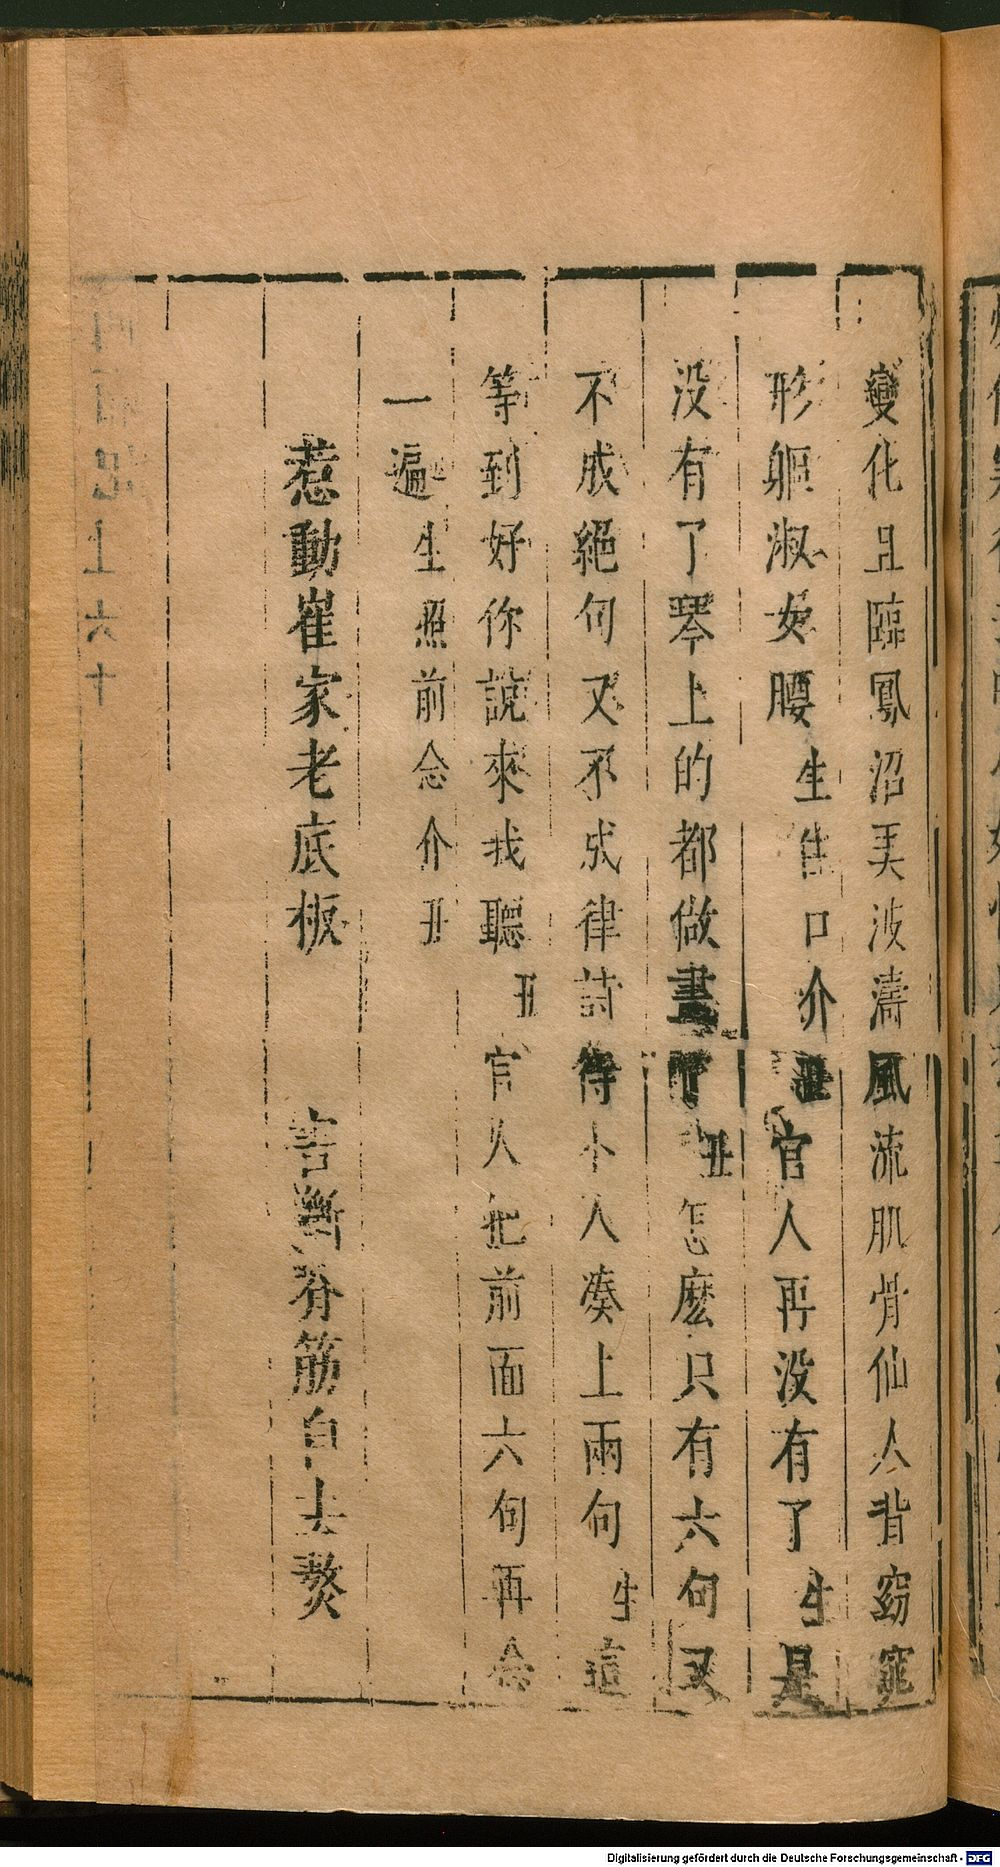 變化且臨鳳沼美波濤風流肌骨仙人背窈窕
形軀淑女腰生住口介丑官人再没有了生是
没有了琴上的都做盡了丑怎麽只有六句又
不成絕句又不成律詩待小人湊上兩句生這
等到好你說來我聽丑官人把前面六句再念
一遍生照前念介丑
惹動崔家老底板 害斷脊筋自去熬
上六十
Digitalisierung gefördert durch die Deutsche Forschungsgemeinschaft - DFG